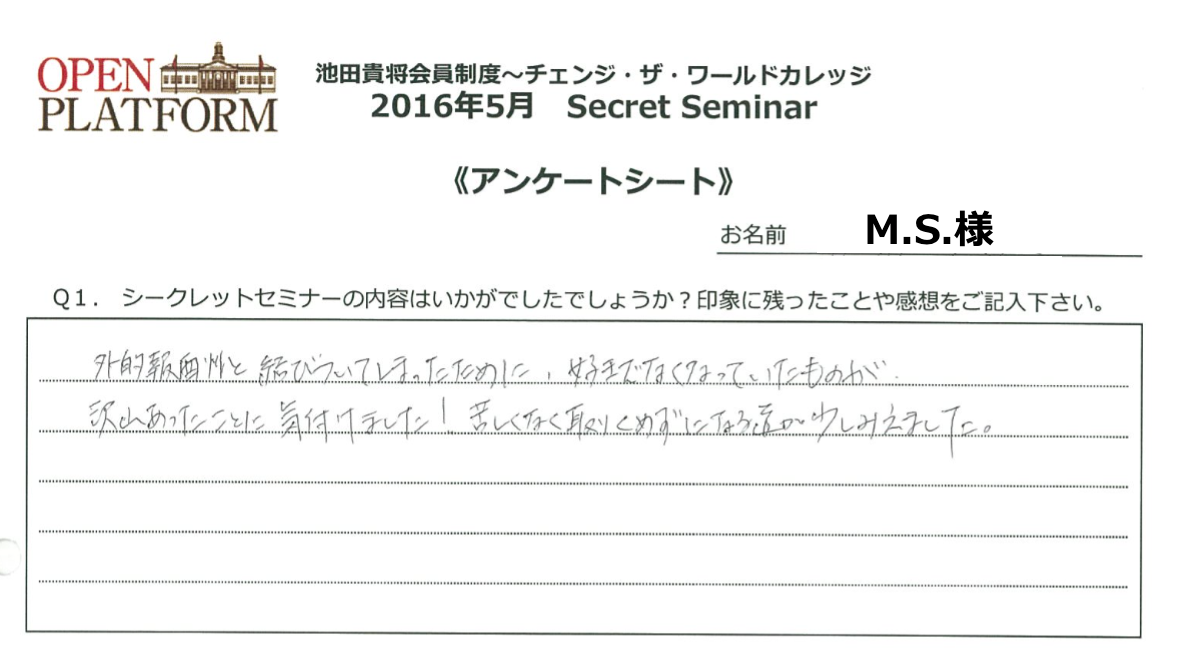 OPEN
PLATFORM
池田貴将会員制度～チェンジ・ザ・ワールドカレッジ
2016年5月　Secret Seminar
《アンケートシート》
お名前　M.S.様
Q1.　シークレットセミナーの内容はいかがでしたでしょうか？印象に残ったことや感想をご記入下さい。
外的報酬と結びついてしまったために、好きでなくなっていたものが
沢山あったことに気付けました！苦しくなく取りくめ　になる道が少しみえました。